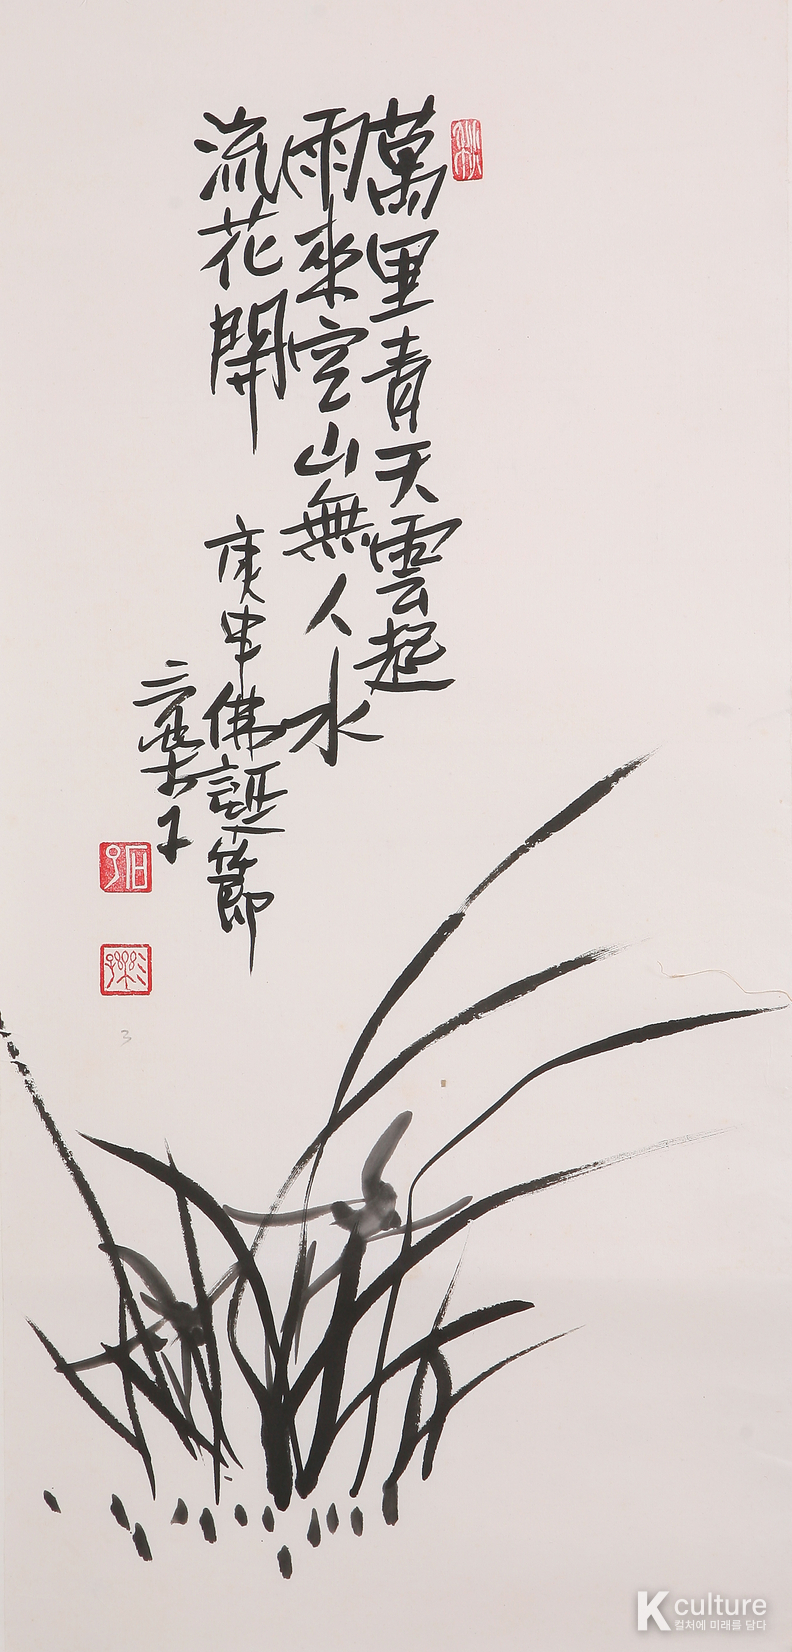 萬里青天雲起
雨來空山無人水
流花開
庚申佛誕節
K culture
컬처에 미래를 담다
3